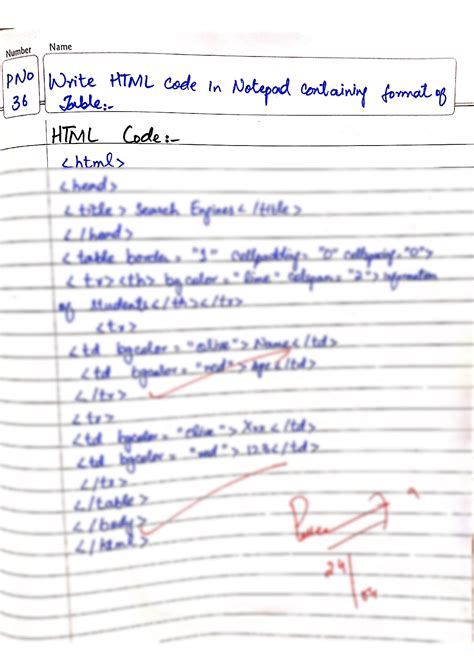 Number Name
PNo 36
Write HTML code in Notepad containing format of
Table:-
HTML Code:-
<html>
<head>
<title> Search Engines </title>
</head>
<table border = "1" cellpadding = "0" cellspacing = "0">
<tr><th> bgcolor = "lime" colspan = "2"> information
of students </th></tr>
<tr>
<td bgcolor = "olive"> Name </td>
<td bgcolor = "red"> Age </td>
</tr>
<tr>
<td bgcolor = "olive"> Xxx </td>
<td bgcolor = "red"> 123 </td>
</tr>
</table>
</body>
</html>
24